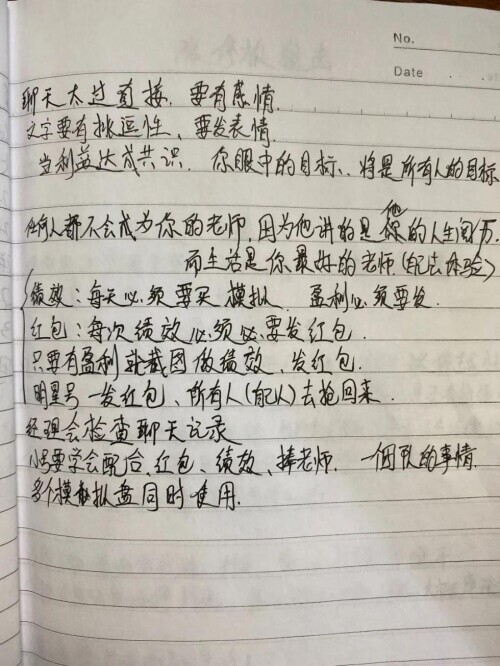 No.
Date
聊天太过直接，要有感情.
文字要有挑逗性、要发表情.
当利益达成共识. 你眼中的目标、将是所有人的目标
任何人都不会成为你的老师，因为他讲的是他的人生阅历.
而生活是你最好的老师(配去体验)
绩效：每天必须要买模拟. 盈利必须要发.
红包：每次绩效必须必要发红包.
只要有盈利就截图做绩效、发红包.
明星号一发红包、所有人(配以)去抢回来.
经理会检查聊天记录
小号要学会配合、红包、绩效、捧老师. 一个团队的事情.
多个模拟盘同时使用.